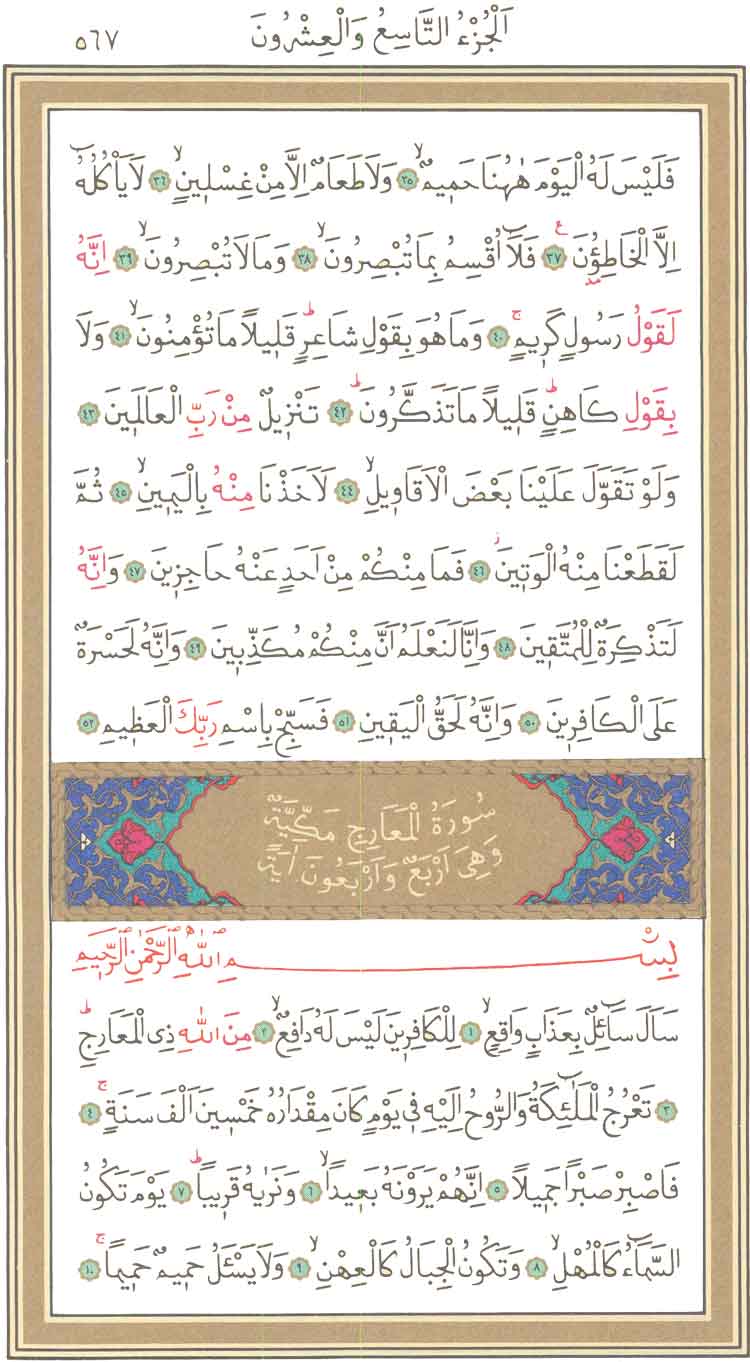 اَلْجُزْءُ التَّاسِعُ وَالْعِشْرُونَ ٥٦٧
فَلَيْسَ لَهُ الْيَوْمَ هٰهُنَا حَم۪يمٌۙ ٣٥ وَلَا طَعَامٌ اِلَّا مِنْ غِسْل۪ينٍۙ ٣٦ لَا يَأْكُلُهُٓ
اِلَّا الْخَاطِؤُ۫نَ۟ ٣٧ فَلَٓا اُقْسِمُ بِمَا تُبْصِرُونَۙ ٣٨ وَمَا لَا تُبْصِرُونَۙ ٣٩ اِنَّهُ
لَقَوْلُ رَسُولٍ كَر۪يمٍۚ ٤٠ وَمَا هُوَ بِقَوْلِ شَاعِرٍۜ قَل۪يلًا مَا تُؤْمِنُونَۙ ٤١ وَلَا
بِقَوْلِ كَاهِنٍۜ قَل۪يلًا مَا تَذَكَّرُونَۜ ٤٢ تَنْز۪يلٌ مِنْ رَبِّ الْعَالَم۪ينَ ٤٣
وَلَوْ تَقَوَّلَ عَلَيْنَا بَعْضَ الْاَقَاو۪يلِۙ ٤٤ لَاَخَذْنَا مِنْهُ بِالْيَم۪ينِۙ ٤٥ ثُمَّ
لَقَطَعْنَا مِنْهُ الْوَت۪ينَۘ ٤٦ فَمَا مِنْكُمْ مِنْ اَحَدٍ عَنْهُ حَاجِز۪ينَ ٤٧ وَاِنَّهُ
لَتَذْكِرَةٌ لِلْمُتَّق۪ينَ ٤٨ وَاِنَّا لَنَعْلَمُ اَنَّ مِنْكُمْ مُكَذِّب۪ينَ ٤٩ وَاِنَّهُ لَحَسْرَةٌ
عَلَى الْكَافِر۪ينَ ٥٠ وَاِنَّهُ لَحَقُّ الْيَق۪ينِ ٥١ فَسَبِّحْ بِاسْمِ رَبِّكَ الْعَظ۪يمِ ٥٢
سُورَةُ الْمَعَارِجِ مَكِّيَّةٌ
وَهِيَ اَرْبَعٌ وَاَرْبَعُونَ اٰيَةً
بِسْمِ اللّٰهِ الرَّحْمٰنِ الرَّح۪يمِ
سَاَلَ سَٓائِلٌ بِعَذَابٍ وَاقِعٍۙ ١ لِلْكَافِر۪ينَ لَيْسَ لَهُ دَافِعٌۙ ٢ مِنَ اللّٰهِ ذِي الْمَعَارِجِۜ
٣ تَعْرُجُ الْمَلٰٓئِكَةُ وَالرُّوحُ اِلَيْهِ ف۪ي يَوْمٍ كَانَ مِقْدَارُهُ خَمْس۪ينَ اَلْفَ سَنَةٍۚ ٤
فَاصْبِرْ صَبْرًا جَم۪يلًا ٥ اِنَّهُمْ يَرَوْنَهُ بَع۪يدًاۙ ٦ وَنَرٰيهُ قَر۪يبًاۜ ٧ يَوْمَ تَكُونُ
السَّمَٓاءُ كَالْمُهْلِۙ ٨ وَتَكُونُ الْجِبَالُ كَالْعِهْنِۙ ٩ وَلَا يَسْـَٔلُ حَم۪يمٌ حَم۪يمًاۚ ١٠